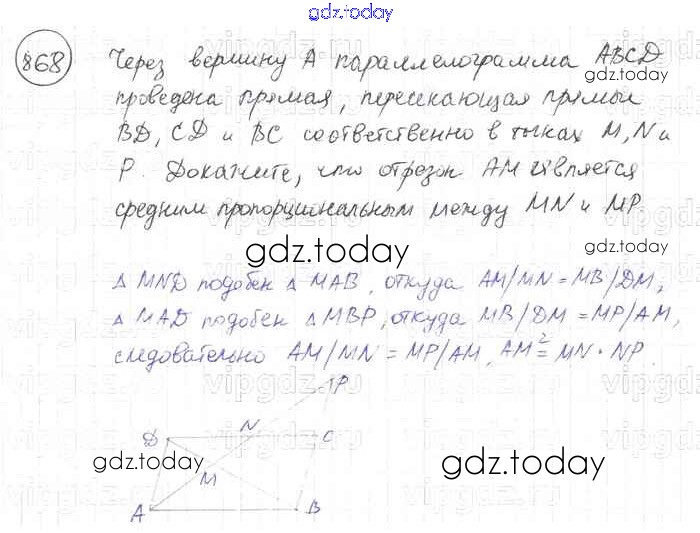 gdz.today
868 Через вершину A параллелограмма ABCD
gdz.today
проведена прямая, пересекающая прямые
BD, CD и BC соответственно в точках M, N и
P. Докажите, что отрезок AM является
средним пропорциональным между MN и MP
gdz.today
gdz.today
△ MND подобен △ MAB, откуда AM/MN = MB/DM,
△ MAD подобен △ MBP, откуда MB/DM = MP/AM,
следовательно AM/MN = MP/AM, AM² = MN · NP.
P
D N C
gdz.today
gdz.today
M
A B